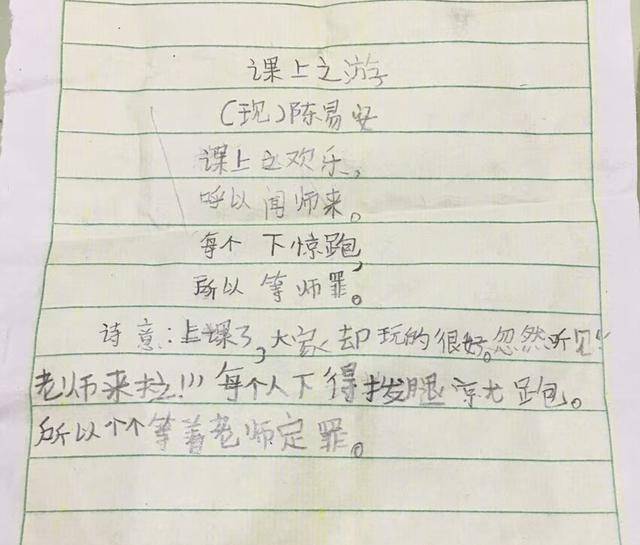 课上之游
(现)陈易安
课上之欢乐,
呼以闻师来。
每个 下惊跑,
所以 等师罪。
诗意:上课了,大家却玩的很好。忽然听见“
老师来拉!!!每个人下得拨腿 就跑。
所以个个等着老师定罪。